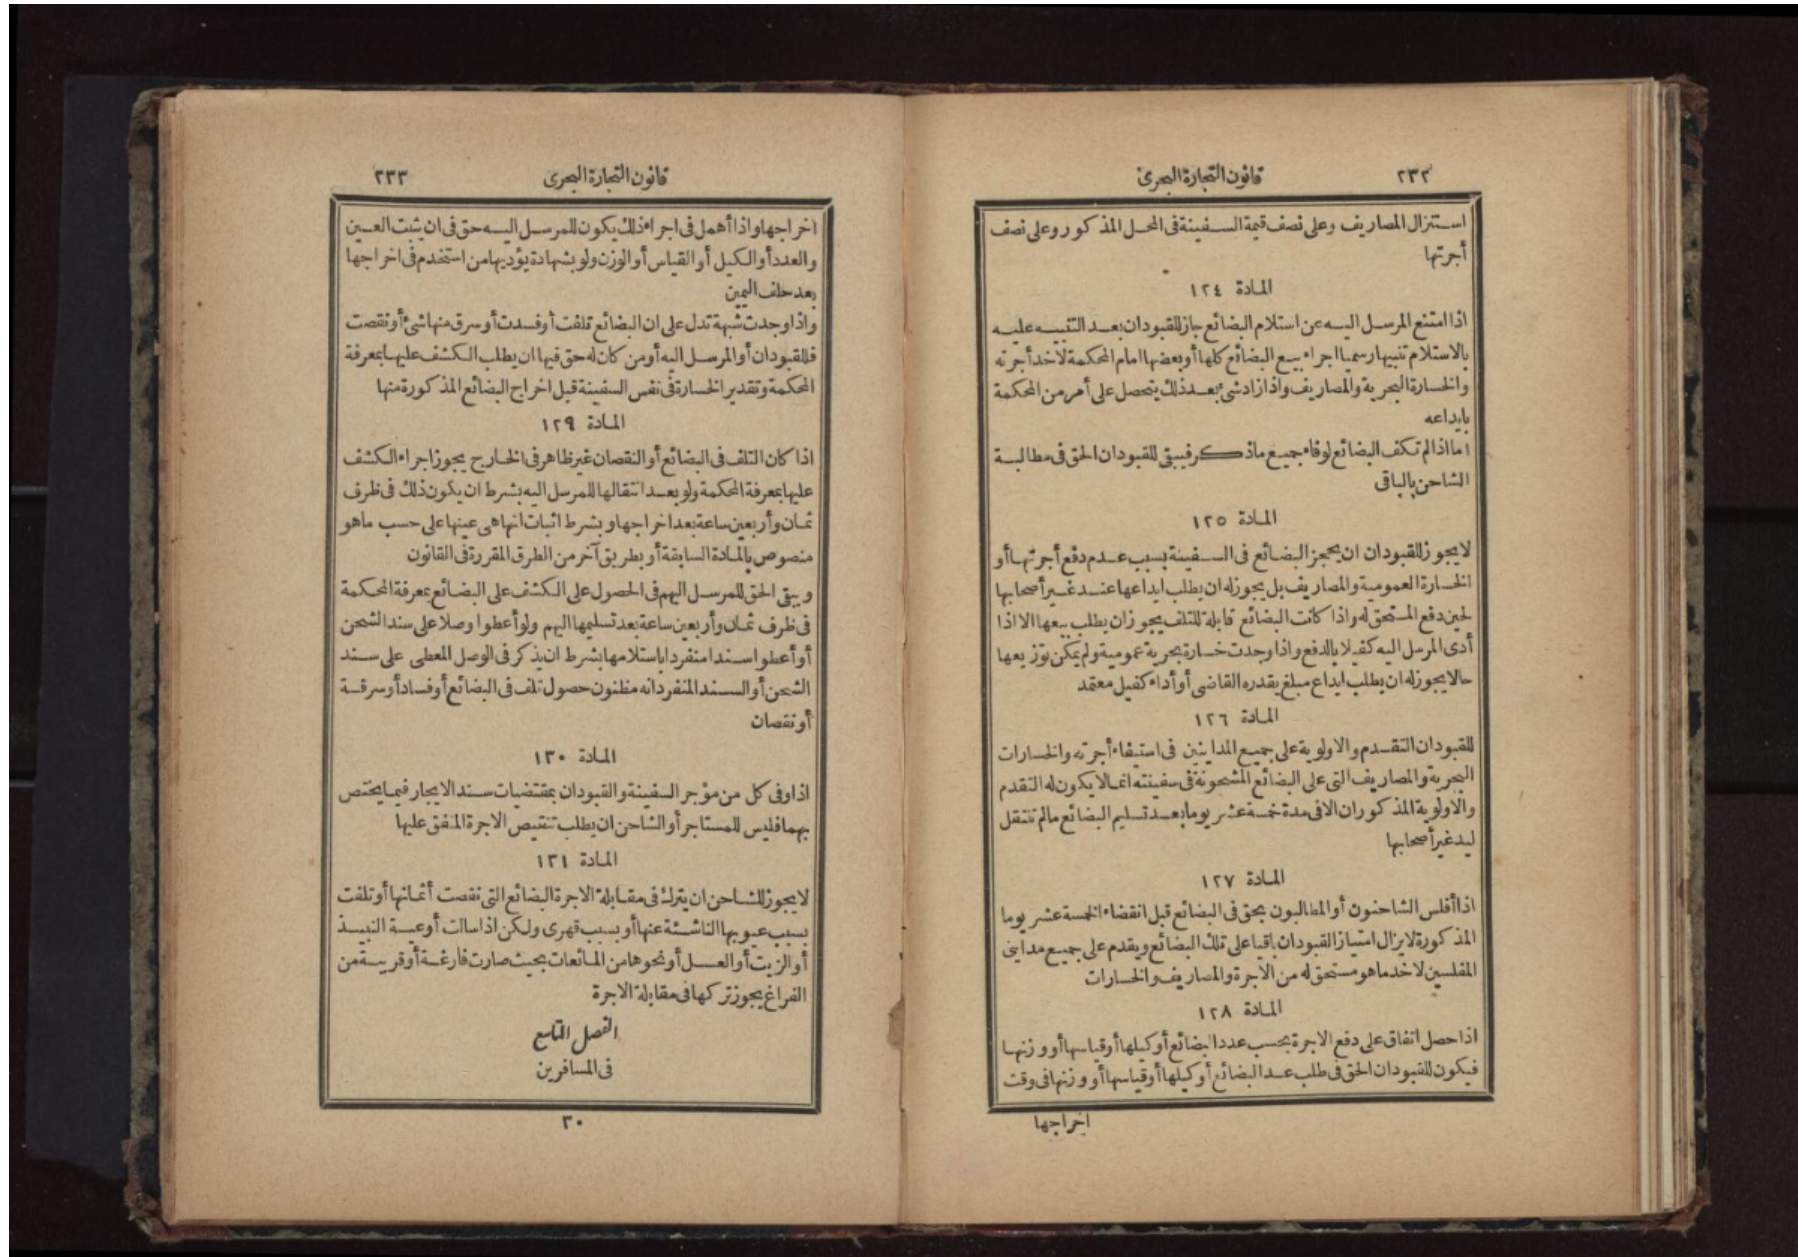 ٢٣٢
قانون التجارة البحرى
استنزال المصاريف وعلى نصف قيمة السفينة فى المحل المذكور وعلى نصف
أجرتها
المادة ١٢٤
اذا امتنع المرسل اليه عن استلام البضائع جاز للقبودان بعد التنبيه عليه
بالاستلام تنبيها رسميا اجراء بيع البضائع كلها أو بعضها امام المحكمة لاخذ أجرته
والخسارة البحرية والمصاريف واذا زاد شئ بعد ذلك يتحصل على أمر من المحكمة
بايداعه
اما اذا لم تكف البضائع لوفاء جميع ماذكر فيبقى للقبودان الحق فى مطالبة
الشاحن بالباقى
المادة ١٢٥
لا يجوز للقبودان ان يحجز البضائع فى السفينة بسبب عدم دفع أجرتها أو
الخسارة العمومية والمصاريف بل يجوز له ان يطلب ايداعها عند غير أصحابها
لحين دفع المستحق له واذا كانت البضائع قابلة للتلف يجوز ان يطلب بيعها الا اذا
أدى المرسل اليه كفيلا بالدفع واذا وجدت خسارة بحرية عمومية ولم يمكن توزيعها
حالا يجوز له ان يطلب ايداع مبلغ يقدره القاضى أو أداء كفيل معتمد
المادة ١٢٦
للقبودان التقدم والاولوية على جميع المداينين فى استيفاء أجرته والخسارات
البحرية والمصاريف التى على البضائع المشحونة فى سفينته انما لا يكون له التقدم
والاولوية المذكوران الا فى مدة خمسة عشر يوما بعد تسليم البضائع مالم تنتقل
ليد غير أصحابها
المادة ١٢٧
اذا أفلس الشاحنون أو المطالبون بحق فى البضائع قبل انقضاء الخمسة عشر يوما
المذكورة لا يزال امتياز القبودان باقيا على تلك البضائع ويقدم على جميع مداينى
المفلسين لاخذ ماهو مستحق له من الاجرة والمصاريف والخسارات
المادة ١٢٨
اذا حصل اتفاق على دفع الاجرة بحسب عدد البضائع أو كيلها أو قياسها أو وزنها
فيكون للقبودان الحق فى طلب عد البضائع أو كيلها أو قياسها أو وزنها فى وقت
اخراجها
قانون التجارة البحرى
٢٣٣
اخراجها واذا أهمل فى اجراء ذلك يكون للمرسل اليه حق فى ان يثبت العين
والعدد أو الكيل أو القياس أو الوزن ولو بشهادة يؤديها من استخدم فى اخراجها
بعد حلف اليمين
واذا وجدت شبهة تدل على ان البضائع تلفت أو فسدت أو سرق منها شئ أو نقصت
فللقبودان أو المرسل اليه أو من كان له حق فيها ان يطلب الكشف عليها بمعرفة
المحكمة وتقدير الخسارة فى نفس السفينة قبل اخراج البضائع المذكورة منها
المادة ١٢٩
اذا كان التلف فى البضائع أو النقصان غير ظاهر فى الخارج يجوز اجراء الكشف
عليها بمعرفة المحكمة ولو بعد انتقالها للمرسل اليه بشرط ان يكون ذلك فى ظرف
ثمان وأربعين ساعة بعد اخراجها وبشرط اثبات انها هى عينها على حسب ماهو
منصوص بالمادة السابقة أو بطريق آخر من الطرق المقررة فى القانون
ويبقى الحق للمرسل اليهم فى الحصول على الكشف على البضائع بمعرفة المحكمة
فى ظرف ثمان وأربعين ساعة بعد تسليمها اليهم ولو أعطوا وصلا على سند الشحن
أو أعطوا سندا منفردا باستلامها بشرط ان يذكر فى الوصل المعطى على سند
الشحن أو السند المنفرد انه مظنون حصول تلف فى البضائع أو فساد أو سرقة
أو نقصان
المادة ١٣٠
اذا وفى كل من مؤجر السفينة والقبودان بمقتضيات سند الايجار فيما يختص
بهما فليس للمستاجر أو الشاحن ان يطلب تنقيص الاجرة المتفق عليها
المادة ١٣١
لا يجوز للشاحن ان يترك فى مقابلة الاجرة البضائع التى نقصت أثمانها أو تلفت
بسبب عيوبها الناشئة عنها أو بسبب قهرى ولكن اذا سالت أوعية النبيذ
أو الزيت أو العسل أو نحوها من المائعات بحيث صارت فارغة أو قريبة من
الفراغ يجوز تركها فى مقابلة الاجرة
الفصل التاسع
فى المسافرين
٣٠